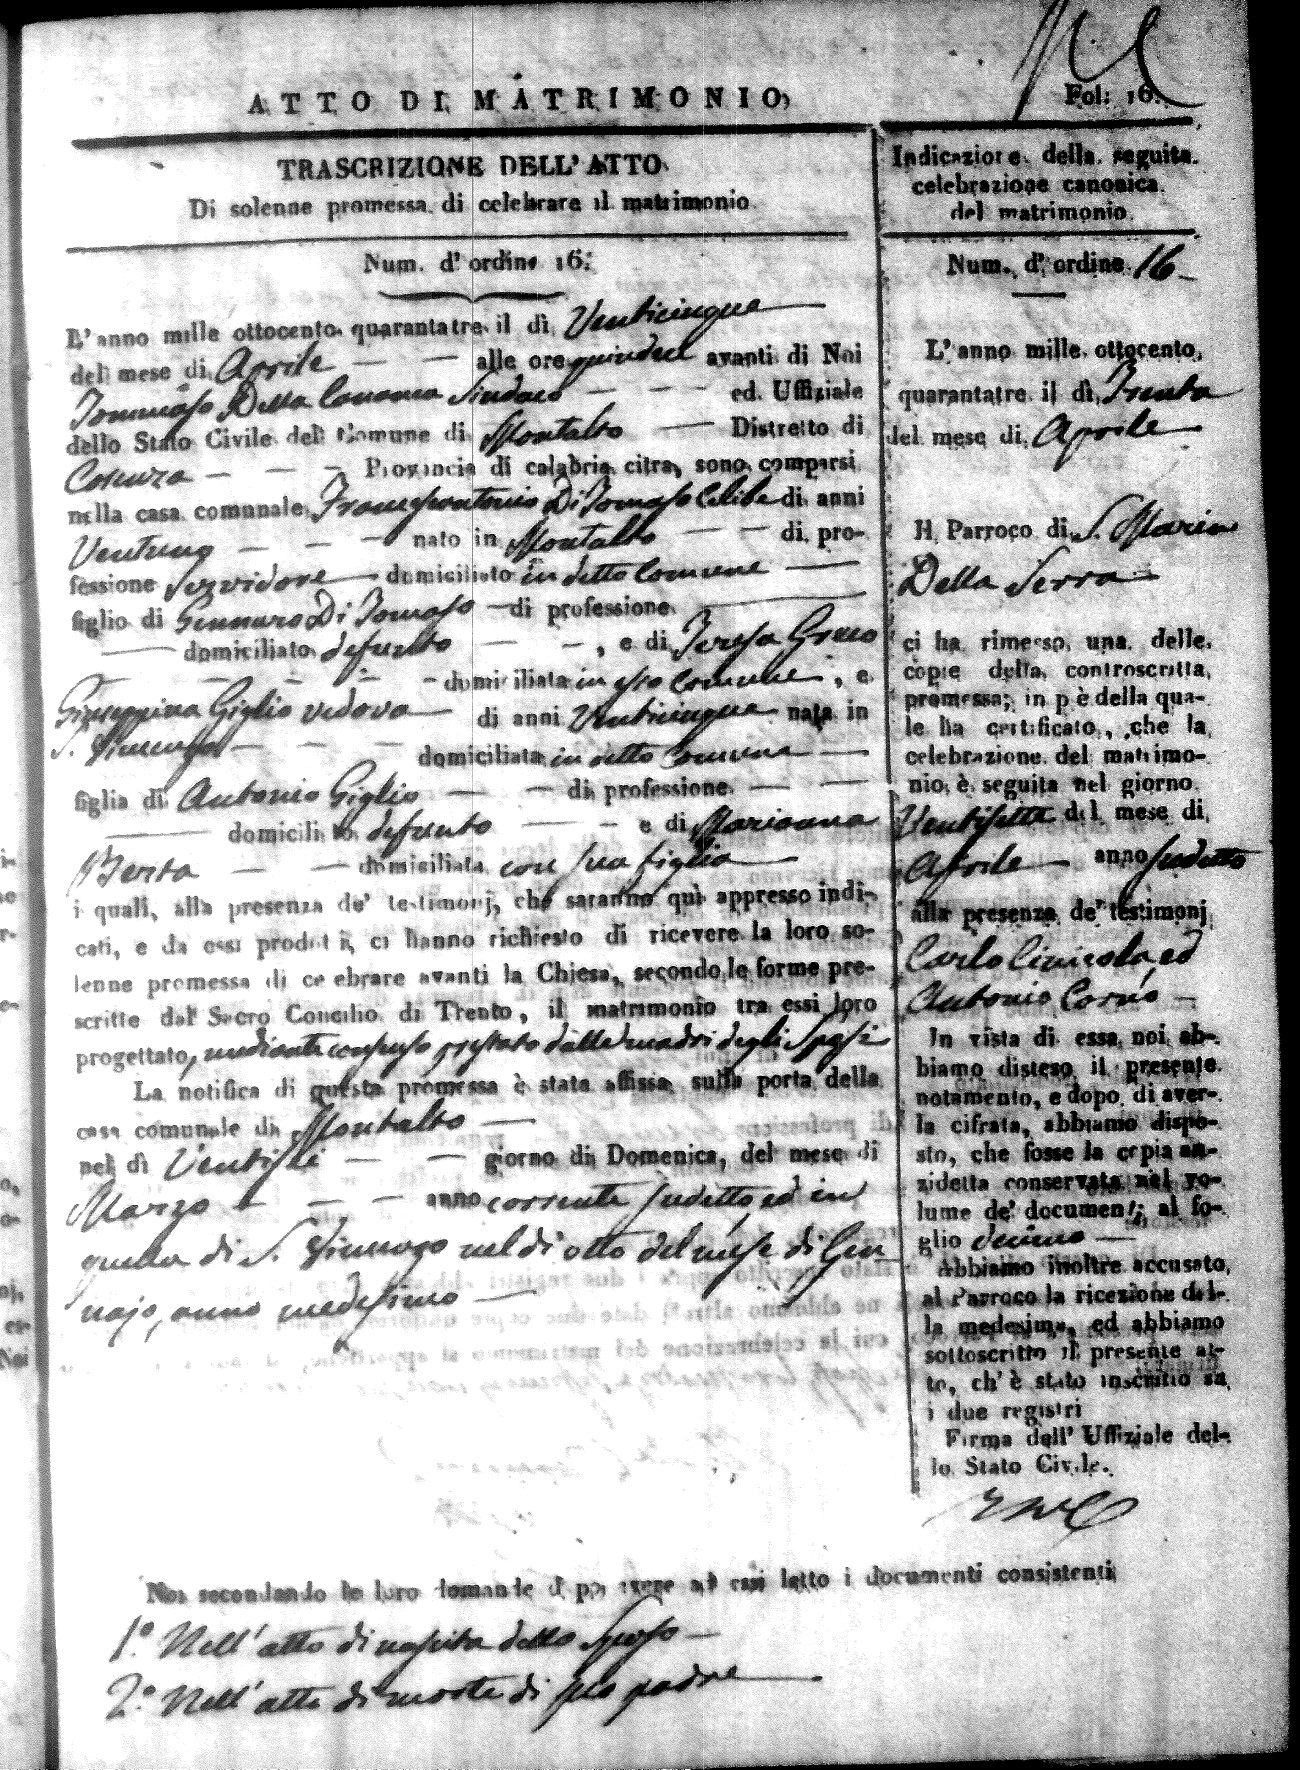 ATTO DI MATRIMONIO
Fol: 16.
TRASCRIZIONE DELL'ATTO
Di solenne promessa di celebrare il matrimonio
Num. d'ordine 16.
L'anno mille ottocento quarantatre il dì Venticinque
del mese di Aprile — — alle ore quindeci avanti di Noi
Tommaso Della Sindaco — — — ed Uffiziale
dello Stato Civile del Comune di Montalto — Distretto di
Cosenza — — — Provincia di calabria citra, sono comparsi
nella casa comunale Francescantonio Di Tomaso Celibe di anni
Ventuno — — — nato in Montalto — — di pro-
fessione Servidore — domiciliato in detto Comune —
figlio di Gennaro Di Tomaso — di professione —
— domiciliato defunto — — , e di Teresa Greco
— — — — — domiciliata in esso Comune , e
Giuseppina Giglio vedova — di anni Venticinque nata in
S. — — — domiciliata in detto Comune —
figlia di Antonio Giglio — — di professione — —
— domicili to defunto — — e di Marianna
— — domiciliata con sua figlia —
i quali, alla presenza de' testimonj, che saranno quì appresso indi-
cati, e da essi prodotti, ci hanno richiesto di ricevere la loro so-
lenne promessa di ce ebrare avanti la Chiesa, secondo le forme pre-
scritte dal Sacro Concilio di Trento, il matrimonio tra essi loro
progettato, mediante consenso prestato dalle madri degli Sposi
La notifica di questa promessa è stata affissa sulla porta della
casa comunale di Montalto —
nel dì Ventisei — — giorno di Domenica, del mese di
Marzo — — — anno corrente sudetto ed in
quella di S. nel dì otto del mese di Gen
najo, anno medesimo —
Indicazione della seguita
celebrazione canonica
del matrimonio.
Num. d'ordine 16 —
L'anno mille ottocento
quarantatre il dì Trenta
del mese di Aprile
Il Parroco di S. Maria
Della Serra
ci ha rimesso una delle
copie della controscritta
promessa; in p è della qua-
le ha certificato, che la
celebrazione del matrimo-
nio è seguita nel giorno
Ventisette del mese di
Aprile — anno sudetto
alla presenza de' testimonj
Carlo ed
Antonio —
In vista di essa noi ab-
biamo disteso il presente
notamento, e dopo di aver-
la cifrata, abbiamo dispo-
sto, che fosse la copia an-
zidetta conservata nel vo-
lume de' documenti al fo-
glio decimo —
Abbiamo inoltre accusato
al Parroco la ricezione del-
la medesima, ed abbiamo
sottoscritto il presente at-
to, ch'è stato inscritto su
i due registri
Firma dell' Uffiziale del-
lo Stato Civile.
Noi secondando le loro domande d po avere ad essi letto i documenti consistenti
1.° Nell'atto di nascita dello Sposo —
2.° Nell'atto di morte di suo padre —